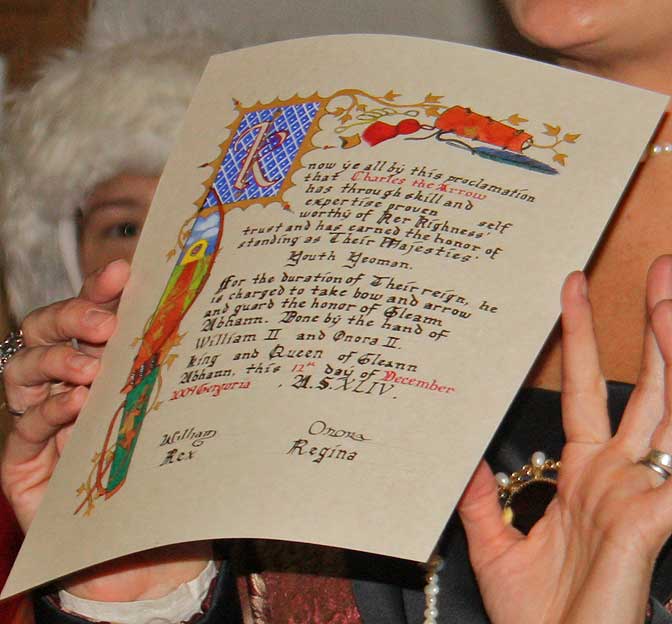 Know ye all by this proclamation
that Charles the Arrow
has through skill and
expertise proven self
worthy of Her Highness'
trust and has earned the honor of
standing as Their Majesties'
Youth Yeoman.
For the duration of Their reign, he
is charged to take bow and arrow
and guard the honor of Gleann
Abhann. Done by the hand of
William II and Onora II.
King and Queen of Gleann
Abhann, this 12th day of December
2004 Gergoria, A.S. XLIV.
William Onora
Rex Regina